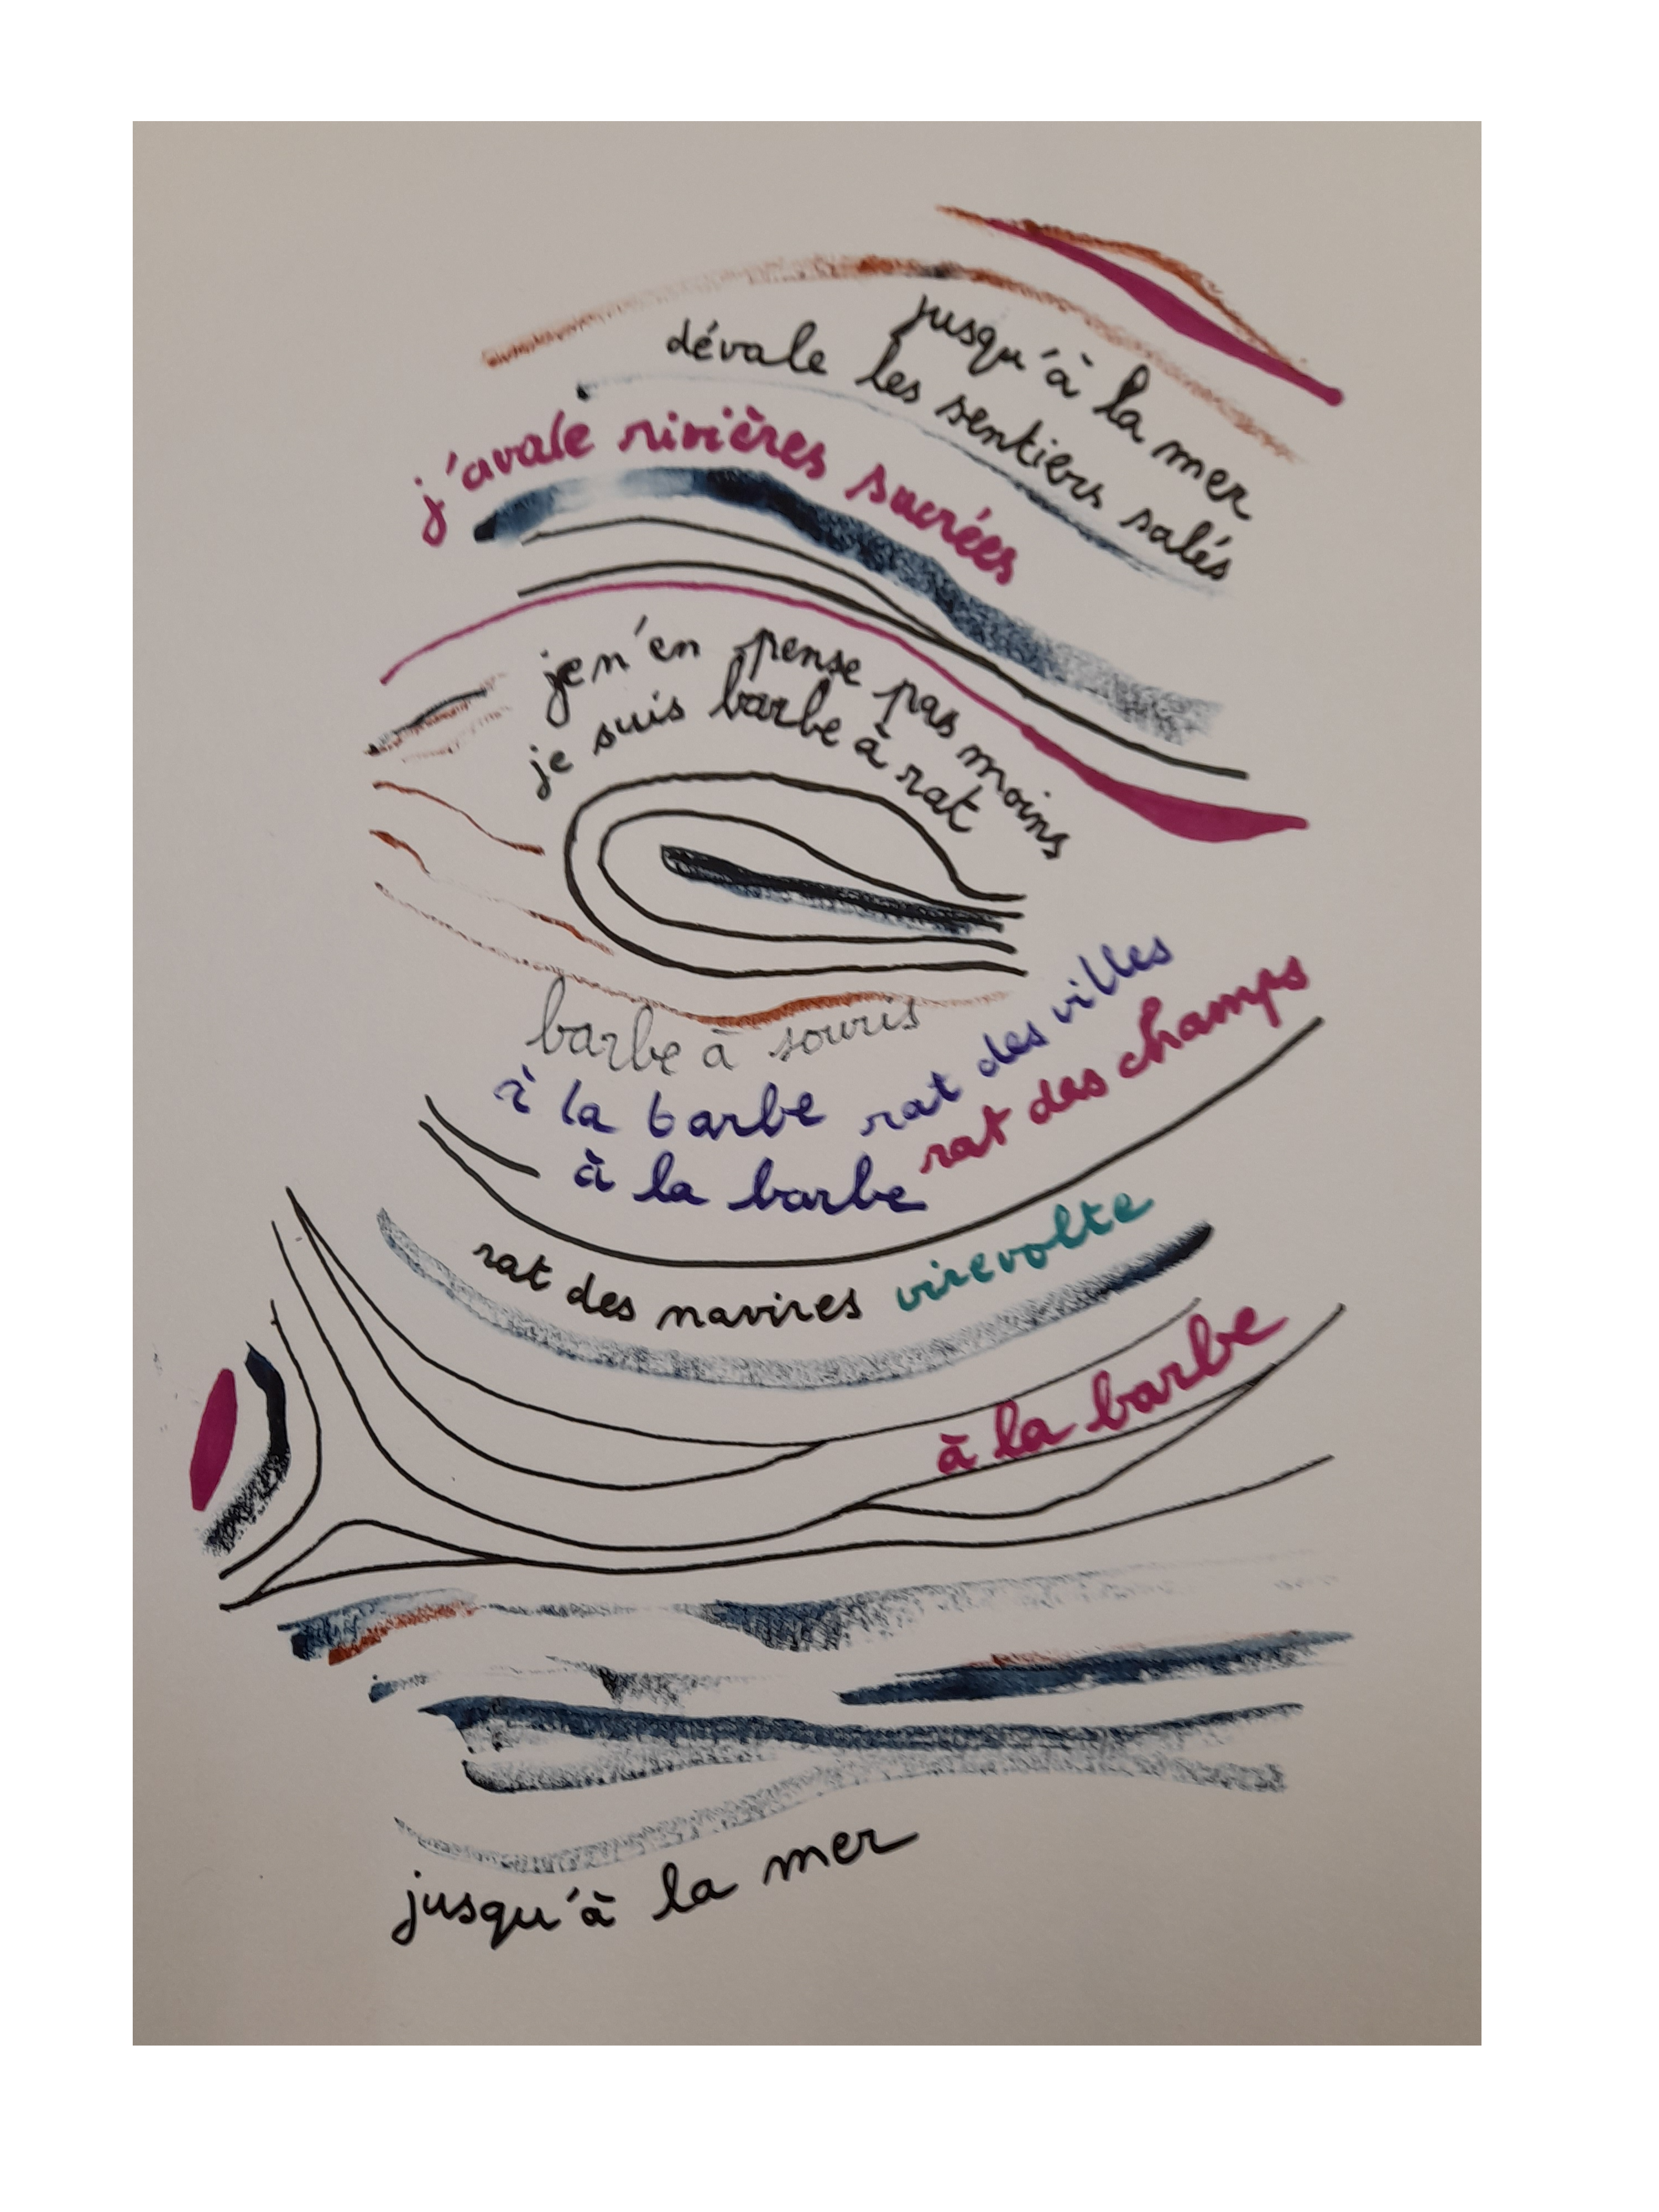 jusqu'à la mer
dévale les sentiers salés
j'avale rivières sucrées
je n'en pense pas moins
je suis barbe à rat
barbe à souris
à la barbe rat des villes
à la barbe rat des champs
rat des navires virevolte
à la barbe
jusqu'à la mer